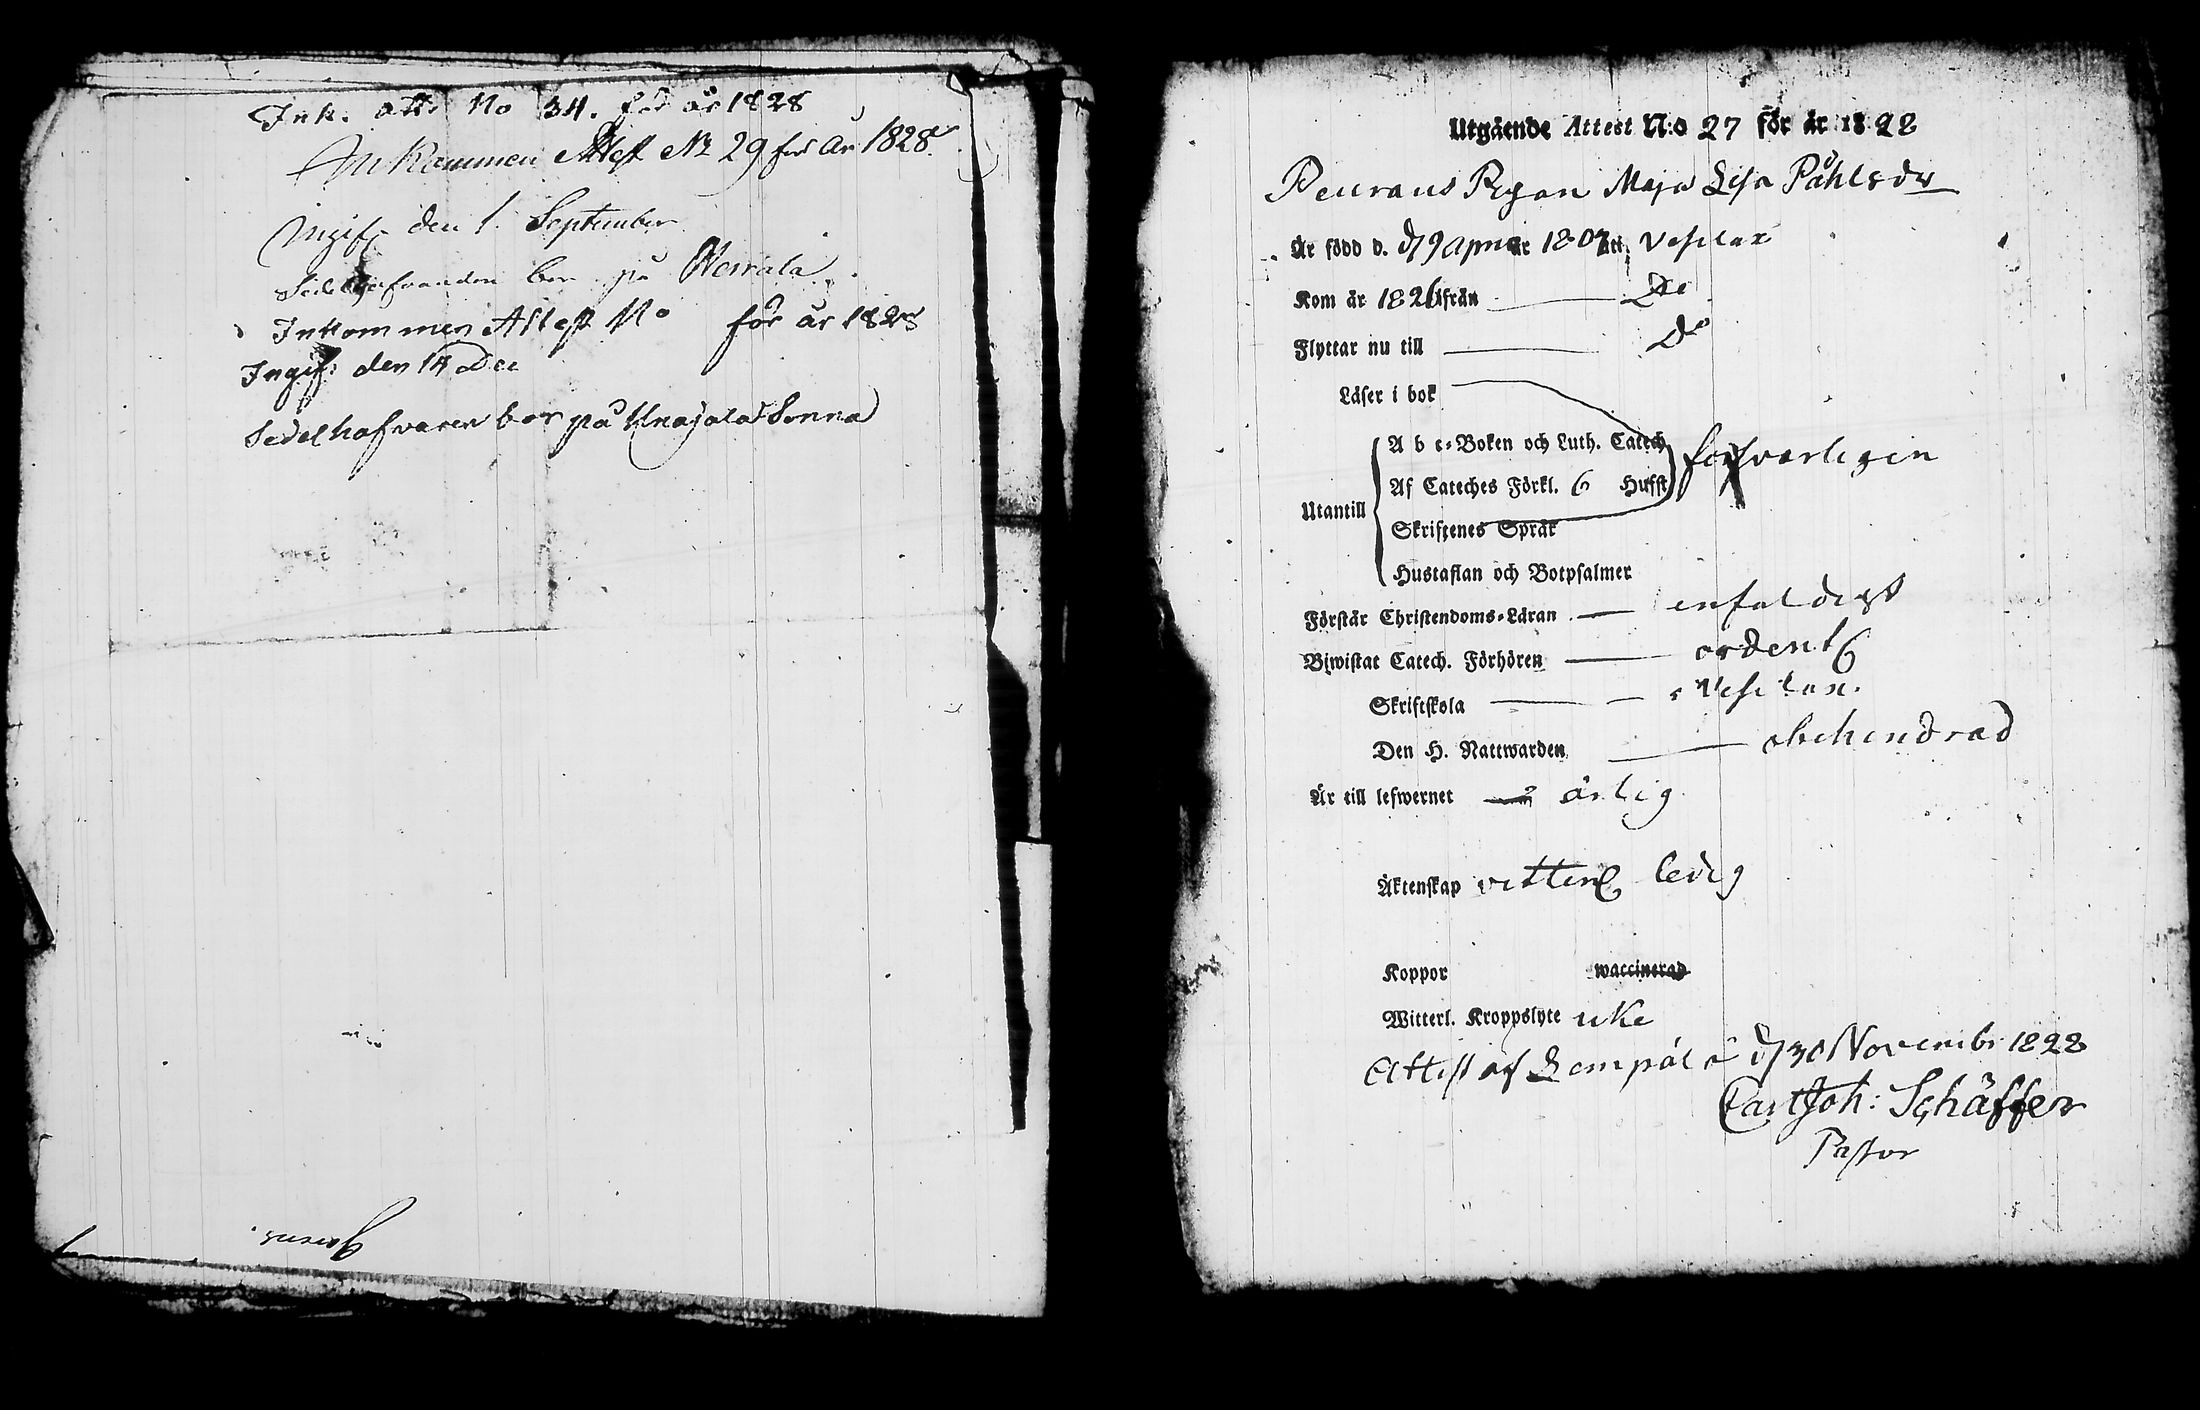 Ink. att: No 34. för år 1828
Inkommen Attest No 29 för År 1828.
Ingifz den 1. September
Sedelhafvanden bor på Werrala
Inkommen Attest No för år 1828
Ingif: den 14 Dec
Sedelhafvaren bor på Knajala Sonna
Utgående Attest N:o 27 för år 1828
Peurans Pigan Maja Lisa Påhlsdr
Är född d. d 9 april år 1807 uti Vesilax
Kom år 1826 ifrån Do
Flyttar nu till Do
Läser i bok
Utantill
A b c-Boken och Luth. Catech
Af Cateches Förkl. 6 Hufst
Skriftenes Språk
försvarligen
Hustaflan och Botpsalmer
Förstår Christendoms-Läran enfaldigt
Biwistat Catech. Förhören ordentl
Skriftskola i Vesilax.
Den H. Nattwarden obehindrad
Är till lefwernet ärlig
Äktenskap vitterl ledig
Koppor waccinerad
Witterl. Kroppslyte icke
Attest af Lempälä d 30 Novembr 1828
Carl Joh: Schäffer
Pastor